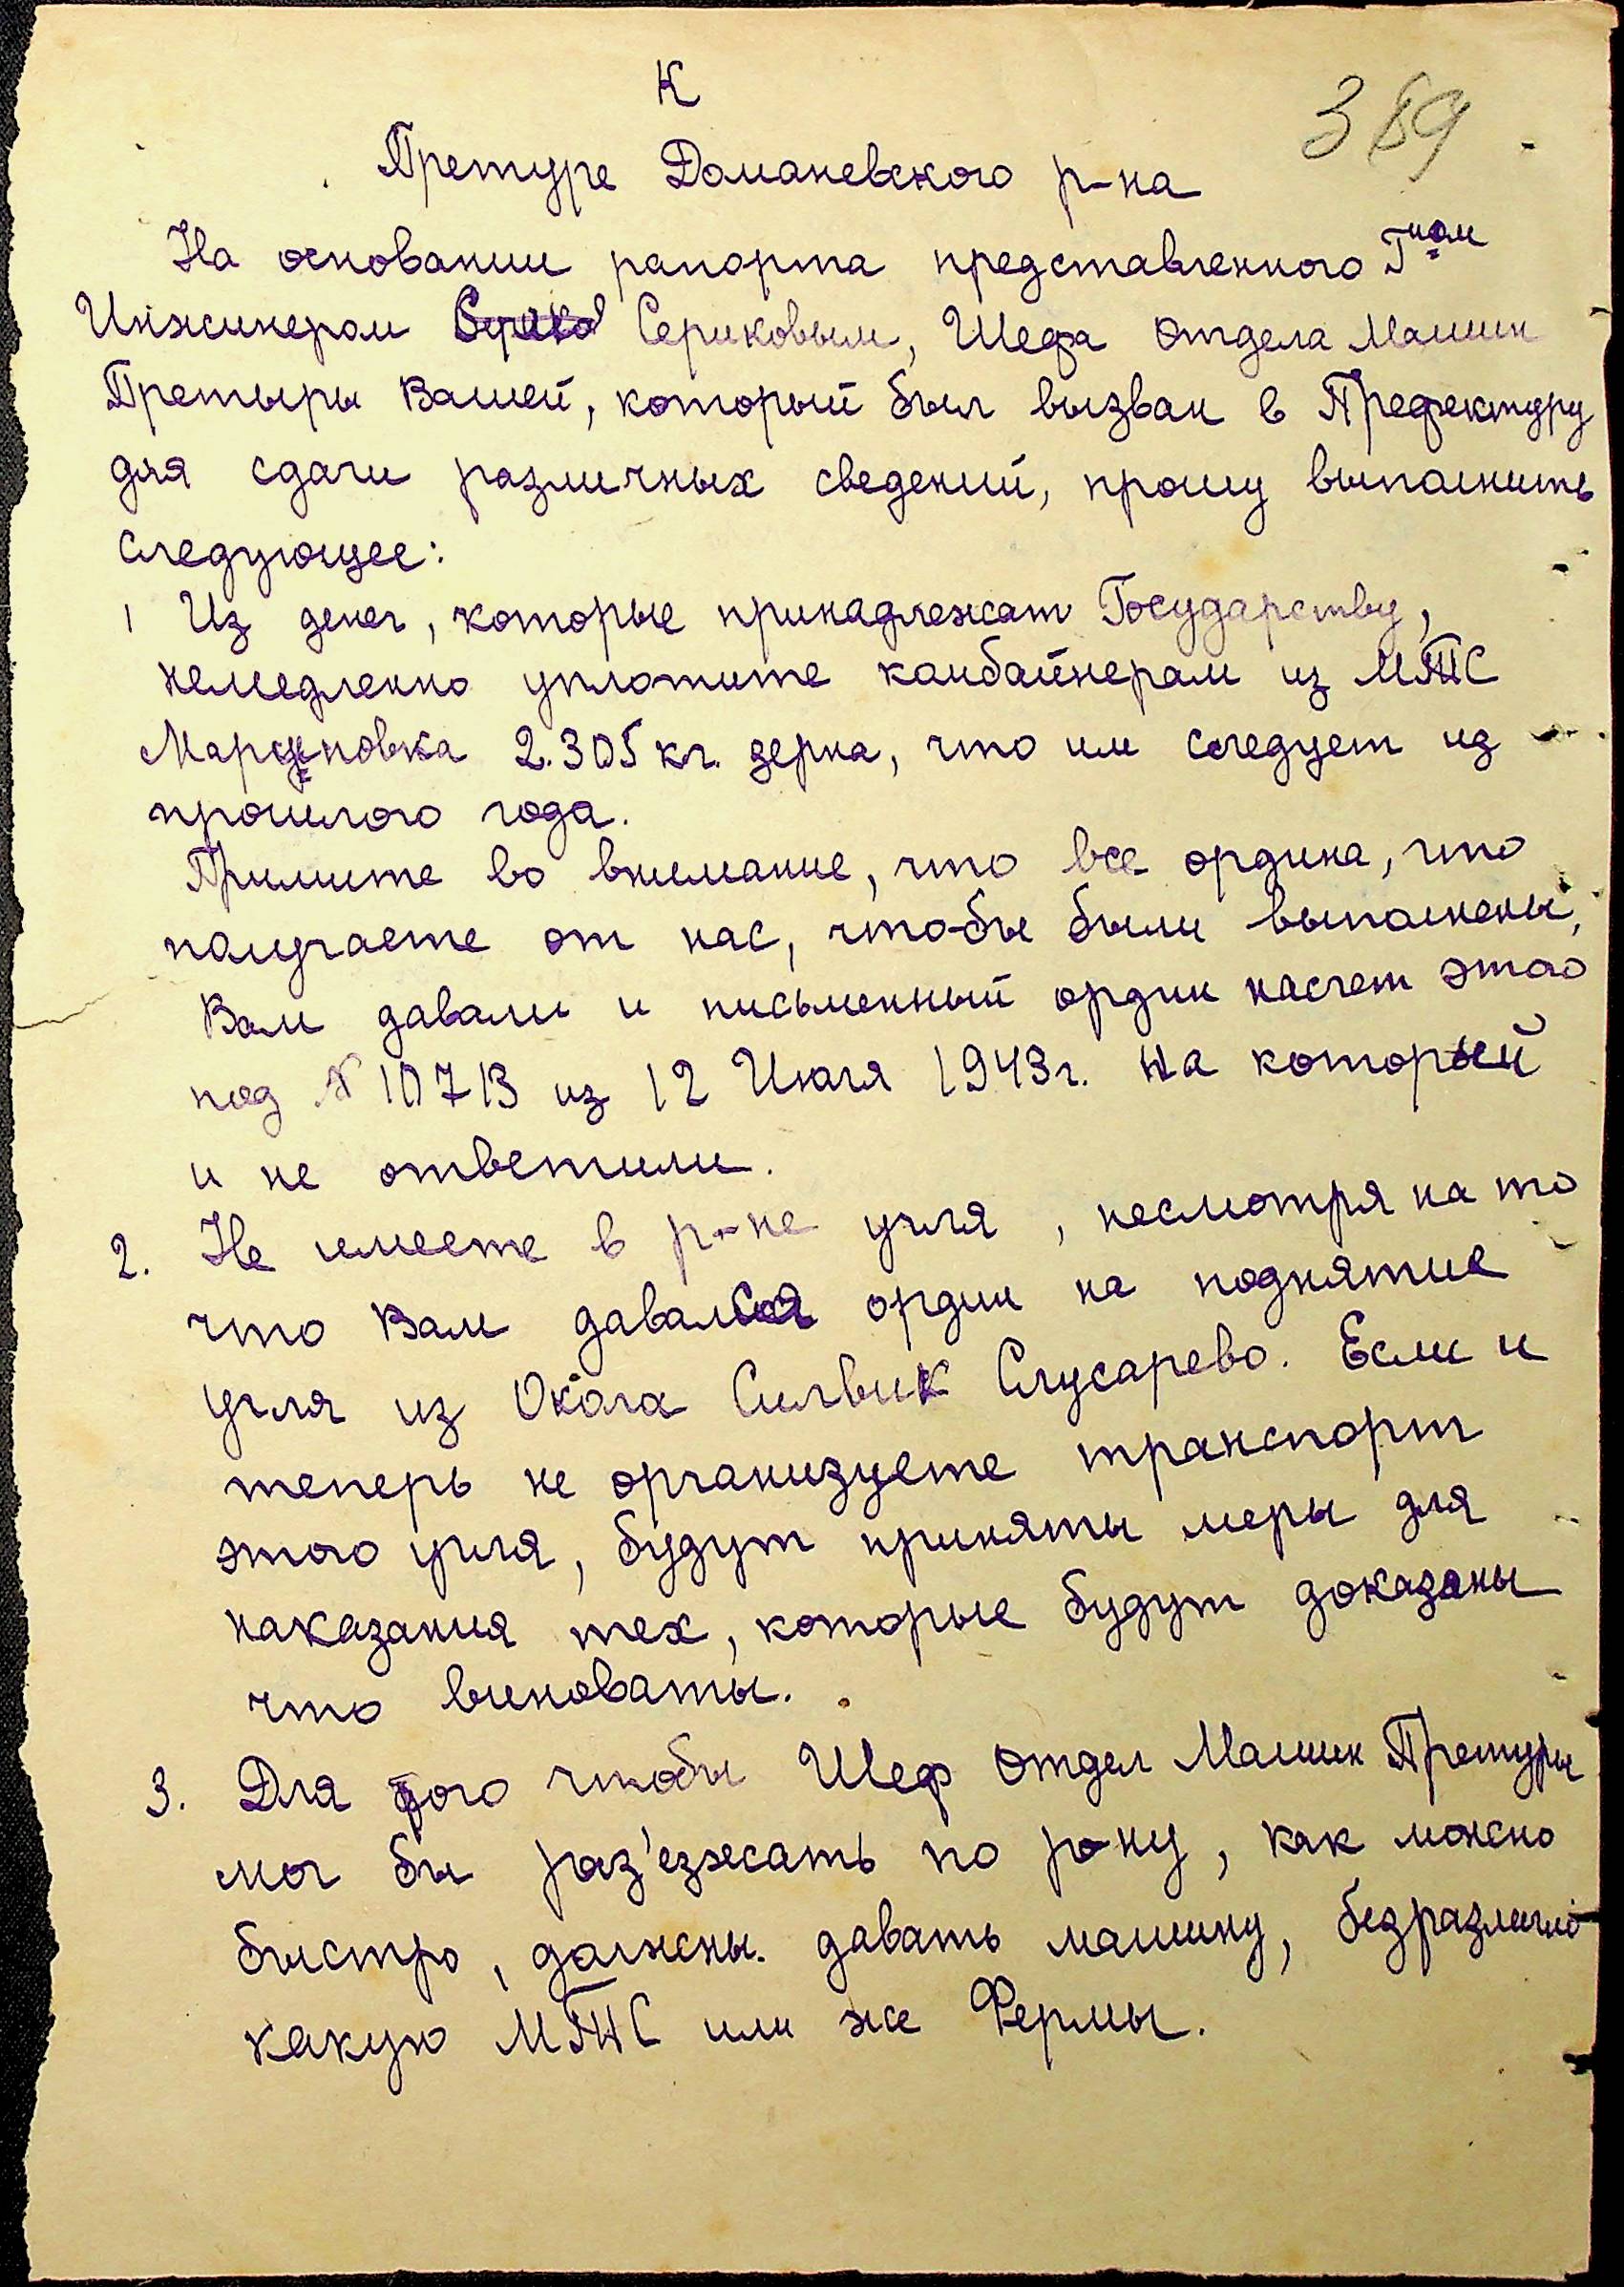 К
389
Претуре Доманевского р-на
На основании рапорта представленного Г-ном
Инжинером Сериковым, Шефа отдела Машин
Претыры Вашей, который был вызван в Префектуру
для сдачи различных сведений, прошу выполнить
следующее:
1 Из денег, которые принадлежат Государству,
немедленно уплотите канбайнерам из МТС
Марциновка 2.305 кг. зерна, что им следует из
прошлого года.
Примите во внимание, что все ордина, что
получаете от нас, что-бы были выполнены,
Вам давали и письменный ордин насчет этого
под № 10713 из 12 Июля 1943г. на который
и не ответили.
2. Не имеете в р-не угля, несмотря на то
что Вам давался ордин на поднятие
угля из Окола Силвик Слусарево. Если и
теперь не организуете транспорт
этого угля, будут приняты меры для
наказания тех, которые будут доказаны
что виноваты.
3. Для того чтобы Шеф Отдел Машин Претуры
мог бы раз'езжать по р-ну, как можно
быстро, должны. давать машину, безразлично
какую МТС или же Фермы.